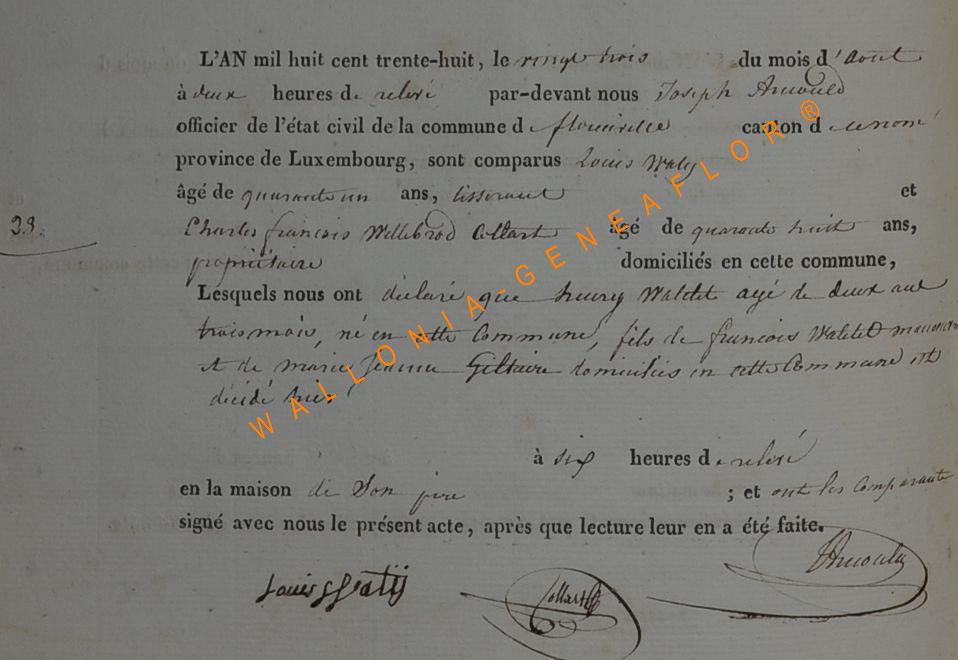 L'AN mil huit cent trente-huit, le vingt trois du mois d'août
à deux heures de relevé par-devant nous Joseph Arnould
officier de l'état civil de la commune de florenville canton de
province de Luxembourg, sont comparus Louis Waty
âgé de quarante un ans, tisserant et
Charles françois Willebrod Collart âgé de quarante huit ans,
39.
propriétaire domiciliés en cette commune,
Lesquels nous ont déclaré que henry Waltet agé de deux ans
trois mois, né en cette Commune, fils de françois Waltet
et de marie Jeanne Giltaire domiciliés en cette Commune est
décédé hier
à six heures de relevé
en la maison de Son père ; et ont les Comparants
signé avec nous le présent acte, après que lecture leur en a été faite.
Louis Watij Collart JArnould
WALLONIA-GENEAFLOR ®